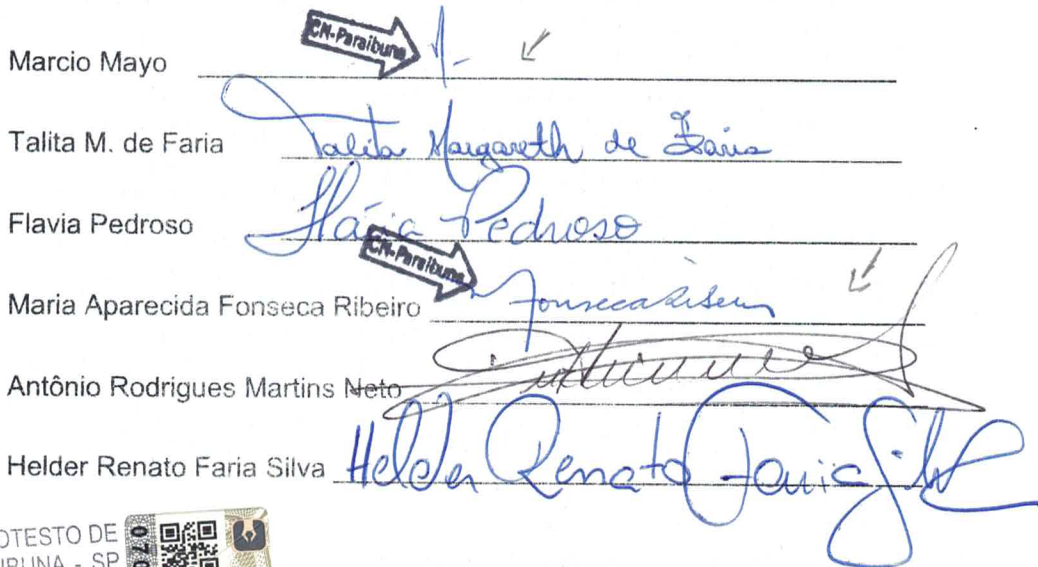 CN-Paraibuna
Marcio Mayo
Talita M. de Faria Talita Margareth de Faria
Flavia Pedroso Flávia Pedroso
CN-Paraibuna
Maria Aparecida Fonseca Ribeiro Fonseca Ribeiro
Antônio Rodrigues Martins Neto
Helder Renato Faria Silva Helder Renato Faria Silva
OTESTO DE
IBUNA - SP
070